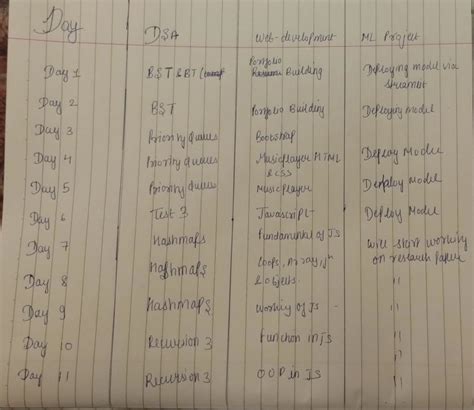 Day DSA Web-development ML Project
Day 1 BST & BT Portfolio Building Deploying model via
Day 2 BST Portfolio Building Deploying model
Day 3 Priority Queues Bootstrap
Day 4 Priority Queues Musicplayer HTML Deploy Model
& CSS
Day 5 Priority Queues Musicplayer Deploy Model
Day 6 Test 3 Javascript Deploy Model
Day 7 Hashmaps Fundamental of JS Will start working
on research paper
Day 8 Hashmaps Loops, array,
& objects "
Day 9 Hashmaps Working of JS "
Day 10 Recursion 3 Function in JS "
Day 11 Recursion 3 OOP in JS "